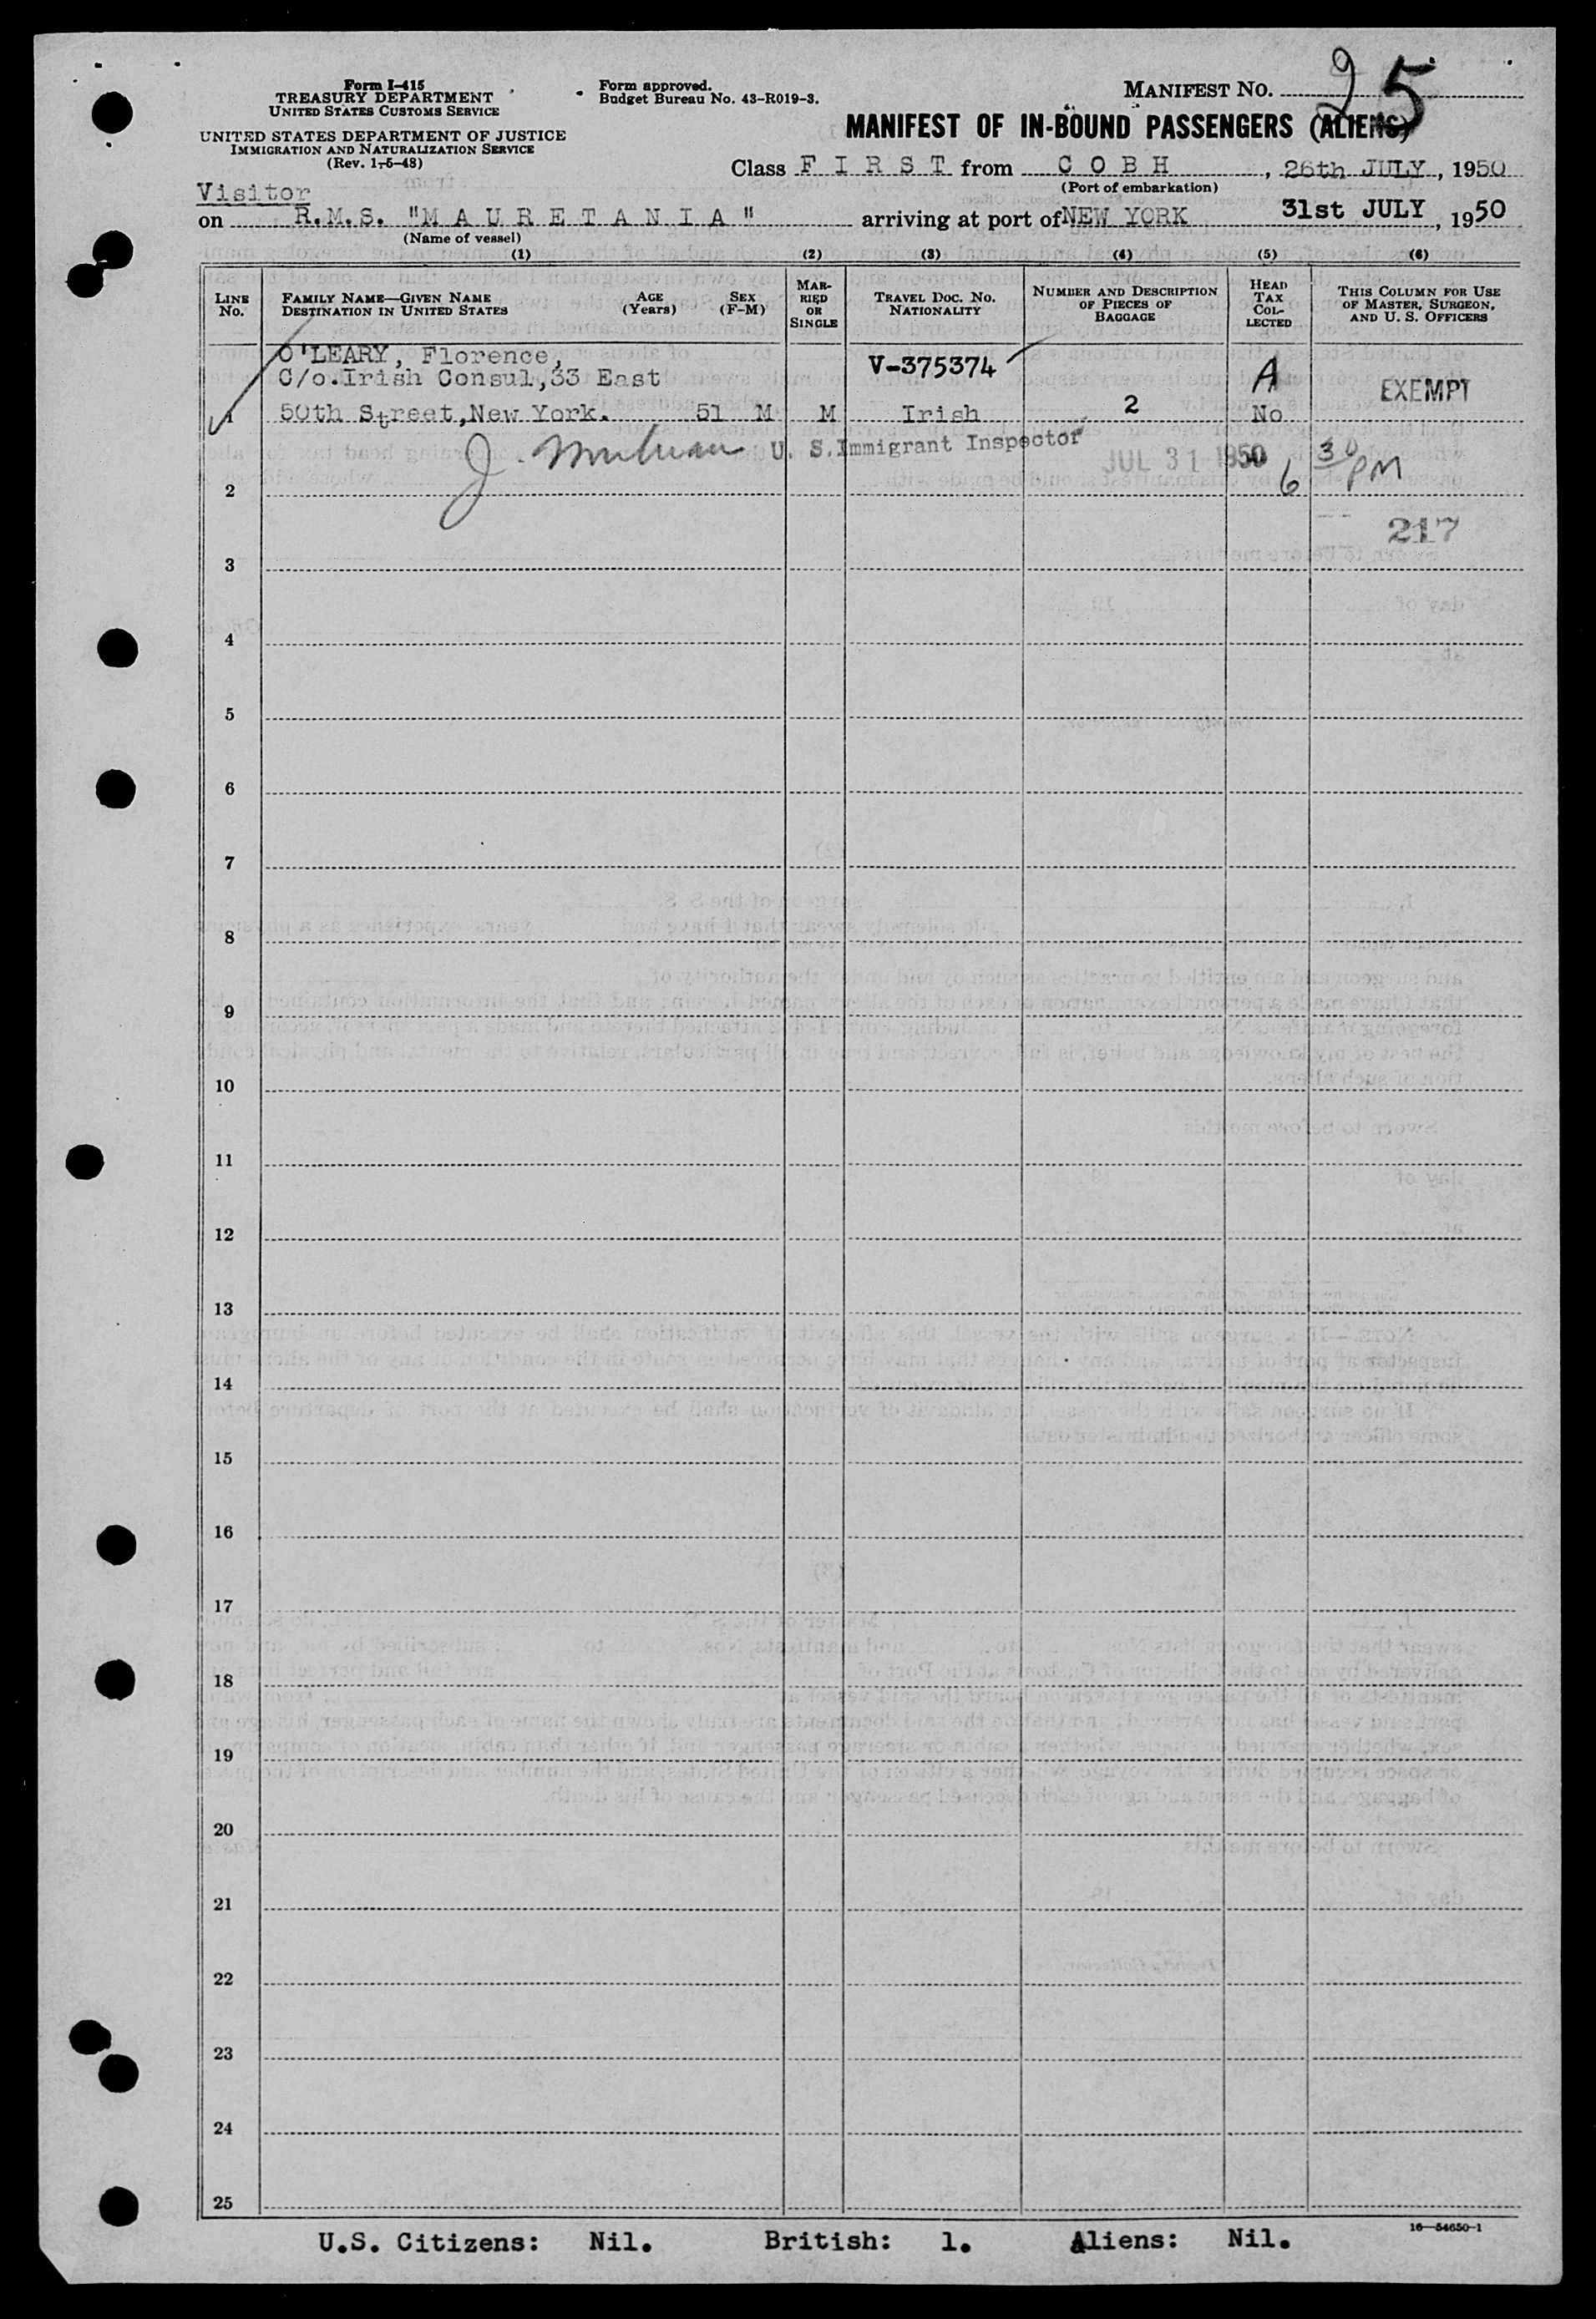 Form I-415
TREASURY DEPARTMENT
UNITED STATES CUSTOMS SERVICE
UNITED STATES DEPARTMENT OF JUSTICE
IMMIGRATION AND NATURALIZATION SERVICE
(Rev. 1-5-48)
Form approved.
Budget Bureau No. 43-R019-3.
MANIFEST NO. 25
MANIFEST OF IN-BOUND PASSENGERS (ALIENS)
Class F I R S T from C O B H, 26th JULY, 1950
(Port of embarkation)
Visitor
on R.M.S. "M A U R E T A N I A" arriving at port of NEW YORK 31st JULY, 1950
(Name of vessel)
(1) (2) (3) (4) (5) (6)
LINE No.
FAMILY NAME—GIVEN NAME
DESTINATION IN UNITED STATES
AGE (Years)
SEX (F-M)
MARRIED OR SINGLE
TRAVEL DOC. NO.
NATIONALITY
NUMBER AND DESCRIPTION OF PIECES OF BAGGAGE
HEAD TAX COLLECTED
THIS COLUMN FOR USE OF MASTER, SURGEON, AND U. S. OFFICERS
O'LEARY, Florence, V-375374
C/o.Irish Consul,33 East A EXEMPT
1 50th Street,New York. 51 M M Irish 2 No
J. U. S. Immigrant Inspector JUL 31 1950 6 30 PM
2
217
3
4
5
6
7
8
9
10
11
12
13
14
15
16
17
18
19
20
21
22
23
24
25
16—54650-1
U.S. Citizens: Nil. British: 1. Aliens: Nil.